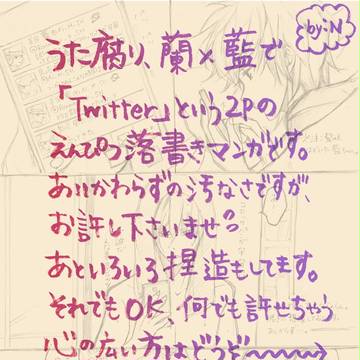 by:N
うた腐り、蘭×藍で
「Twitter」という2Pの
えんぴつ落書きマンガです。
あいかわらずの汚なさですが、
お許し下さいませ
あといろいろ捏造もしてます。
それでもOK、何でも許せちゃう
心の広い方はどうぞ